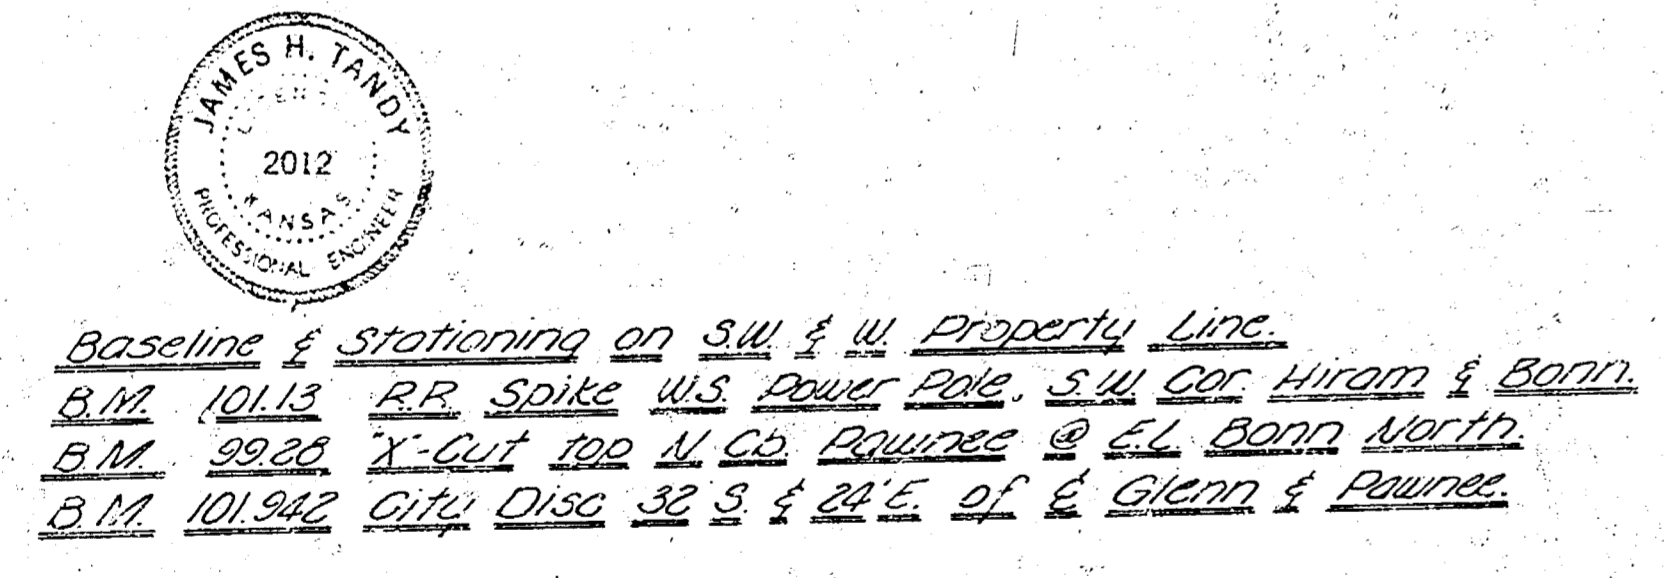 JAMES H. TANDY
LICENSED
2012
KANSAS
PROFESSIONAL ENGINEER
Baseline & Stationing on S.W. & W. Property Line.
B.M. 101.13 R.R. Spike W.S. Power Pole, S.W. Cor. Hiram & Bonn.
B.M. 99.28 "X"-Cut top N Cb. Pawnee @ E.L. Bonn North.
B.M. 101.942 City Disc 32' S. & 24' E. of ℄ Glenn & Pawnee.